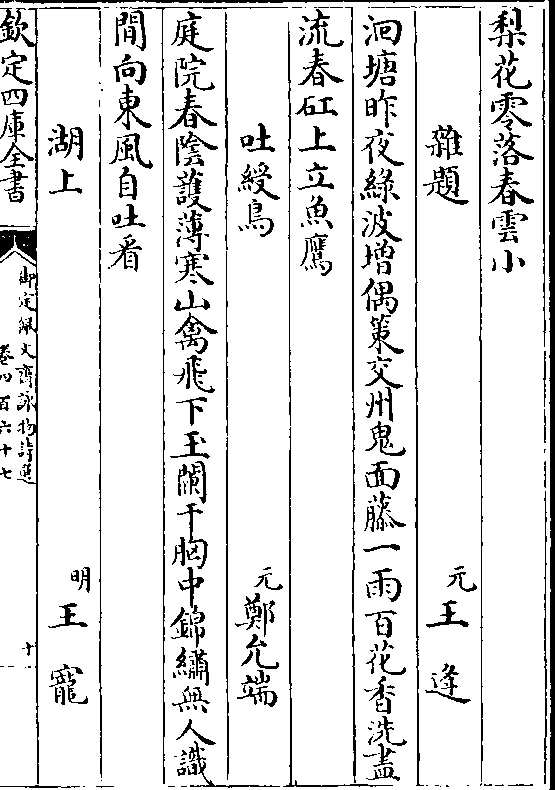 梨花零落春雲小
雜題　元王逢
洄塘昨夜綠波增偶策交州鬼面藤一雨百花香洗盡
流春矼上立魚鷹
吐綬鳥　元鄭允端
庭院春陰護薄寒山禽飛下玉闌干胸中錦繡無人識
閒向東風自吐看
湖上　明王寵
欽定四庫全書
御定佩文齋詠物詩選
卷四百六十七
十